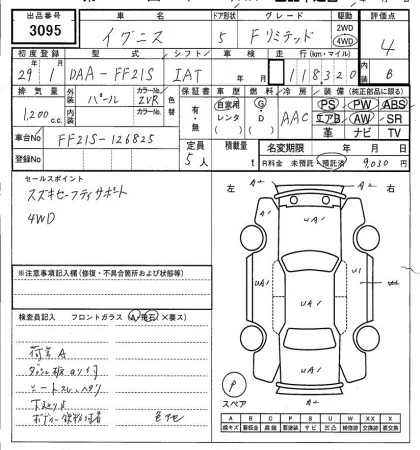 出品番号 車名 ドア形状 グレード 駆動 評価点
3095 イグニス 5 Fリミテッド 2WD 4WD 4
初度登録 型式 シフト 車検 走行(km・マイル) 内装
29年1月 DAA-FF21S IAT 年 月 118320 B
排気量 外装 カラーNo. 色替 保証書 車歴 燃料 冷房 装備(純正部品に限る)
1,200cc 内装 パール ZVR 有・無 自家用 レンタ G・D AAC PS PW ABS
エアB AW SR
革 ナビ TV
車台No FF21S-126825
登録No 定員 5人 積載量 t 名変期限 年 月 日
R料金 未預託 預託済 9,030円
セールスポイント
スズキセーフティサポート
4WD
左 右
※注意事項記入欄(修復・不具合箇所および状態等)
検査員記入 フロントガラス(A・飛石・×要ス)
荷室A
シートスレ、ヘタリ
ボディー鉄粉付着 色アセ
P
スペア
A1
UA1
UA1
UA1
UA1
U1
UA1
A2
A B P C S U W X XX
線キズ 要板金 要塗装 腐蝕 サビ 凹凸 補修跡 交換跡 要交換